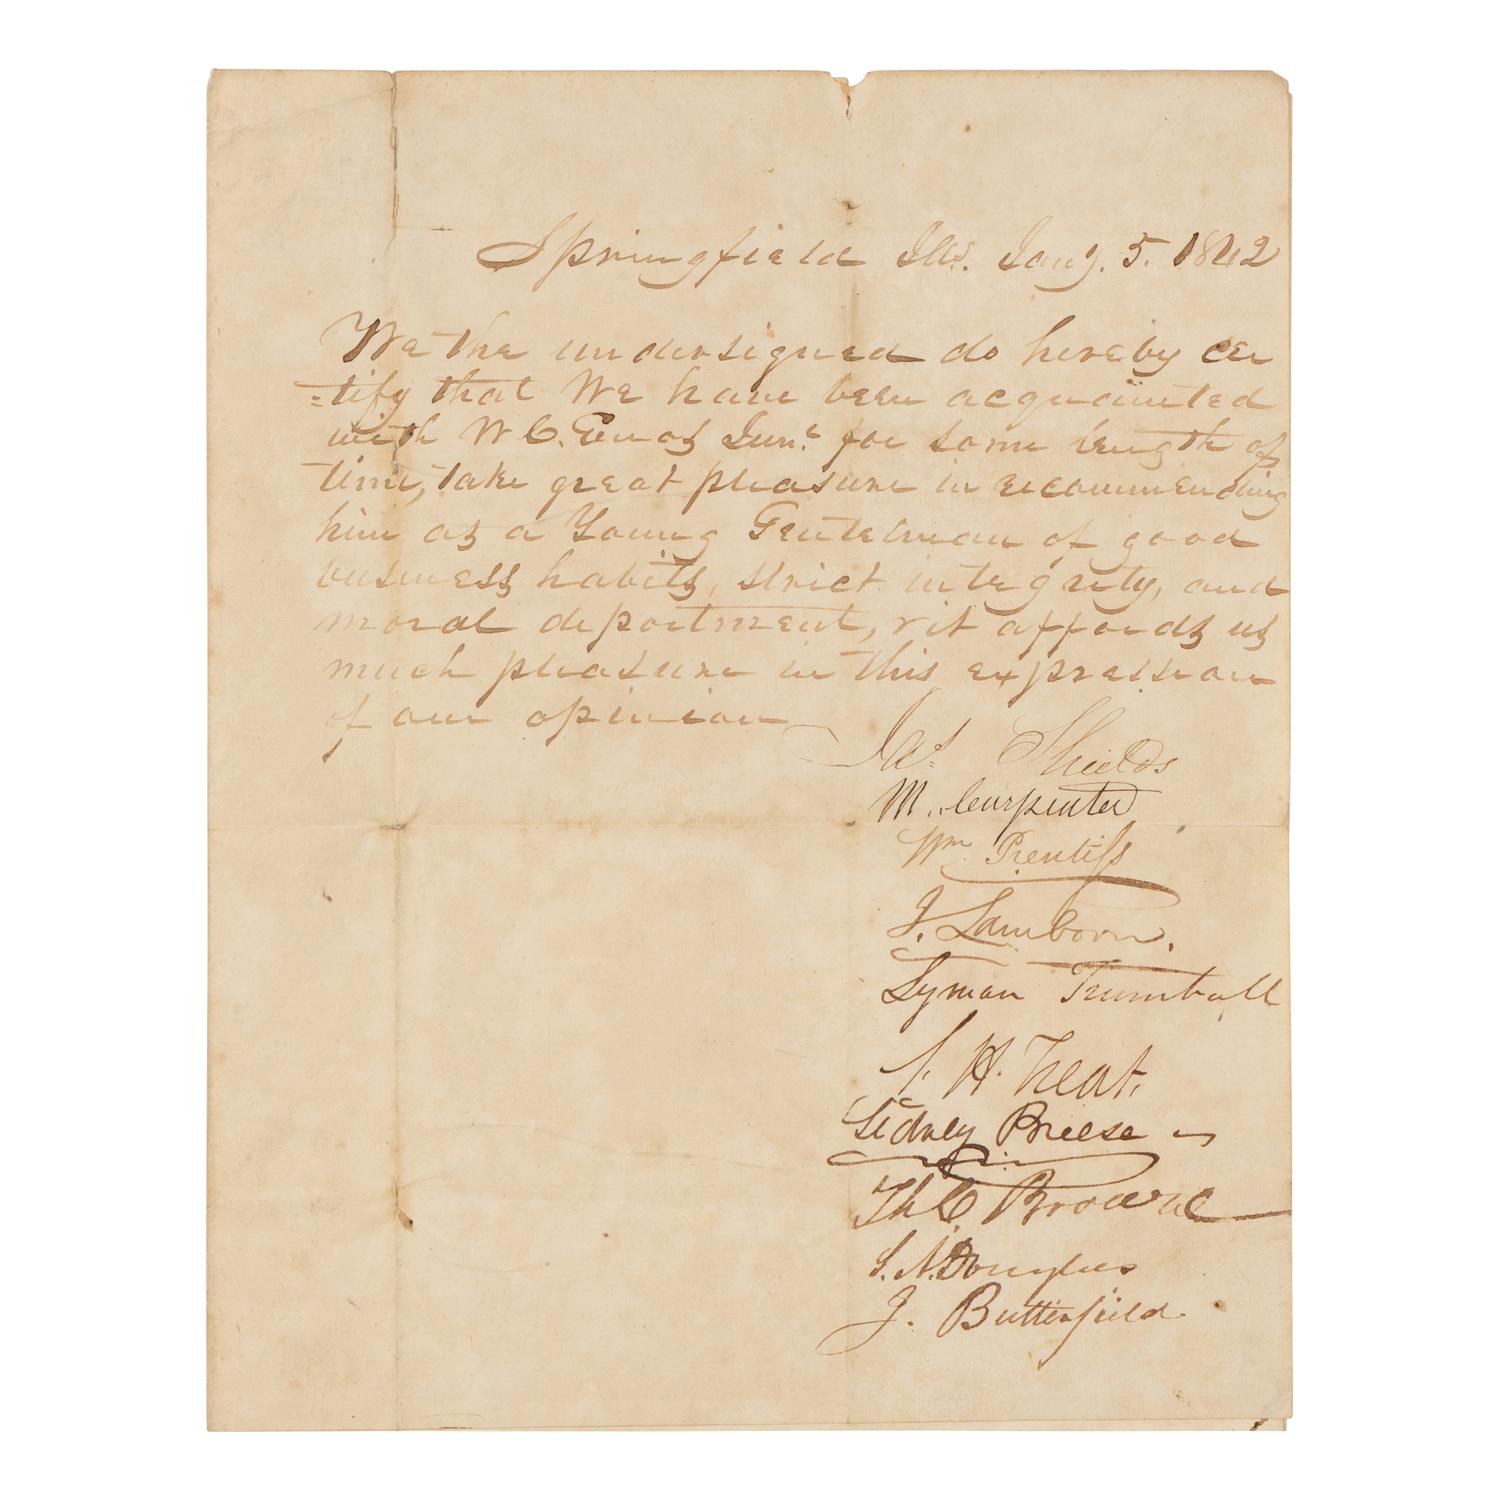 Springfield Ills. Jany. 5. 1842
We the undersigned do hereby cer
=tify that We have been acquainted
with W C. Enos Junr for some length of
time, take great pleasure in recommending
him as a Young Gentelman of good
business habits, strict integrity, and
moral deportment, & it affords us
much pleasure in this expression
of our opinion
Jas. Shields
M. Carpenter
Wm Prentiss
J. Lamborn.
Lyman Trumbull
S. H. Treat.
Sidney Breese
Th C. Browne
S. A. Douglas
J. Butterfield